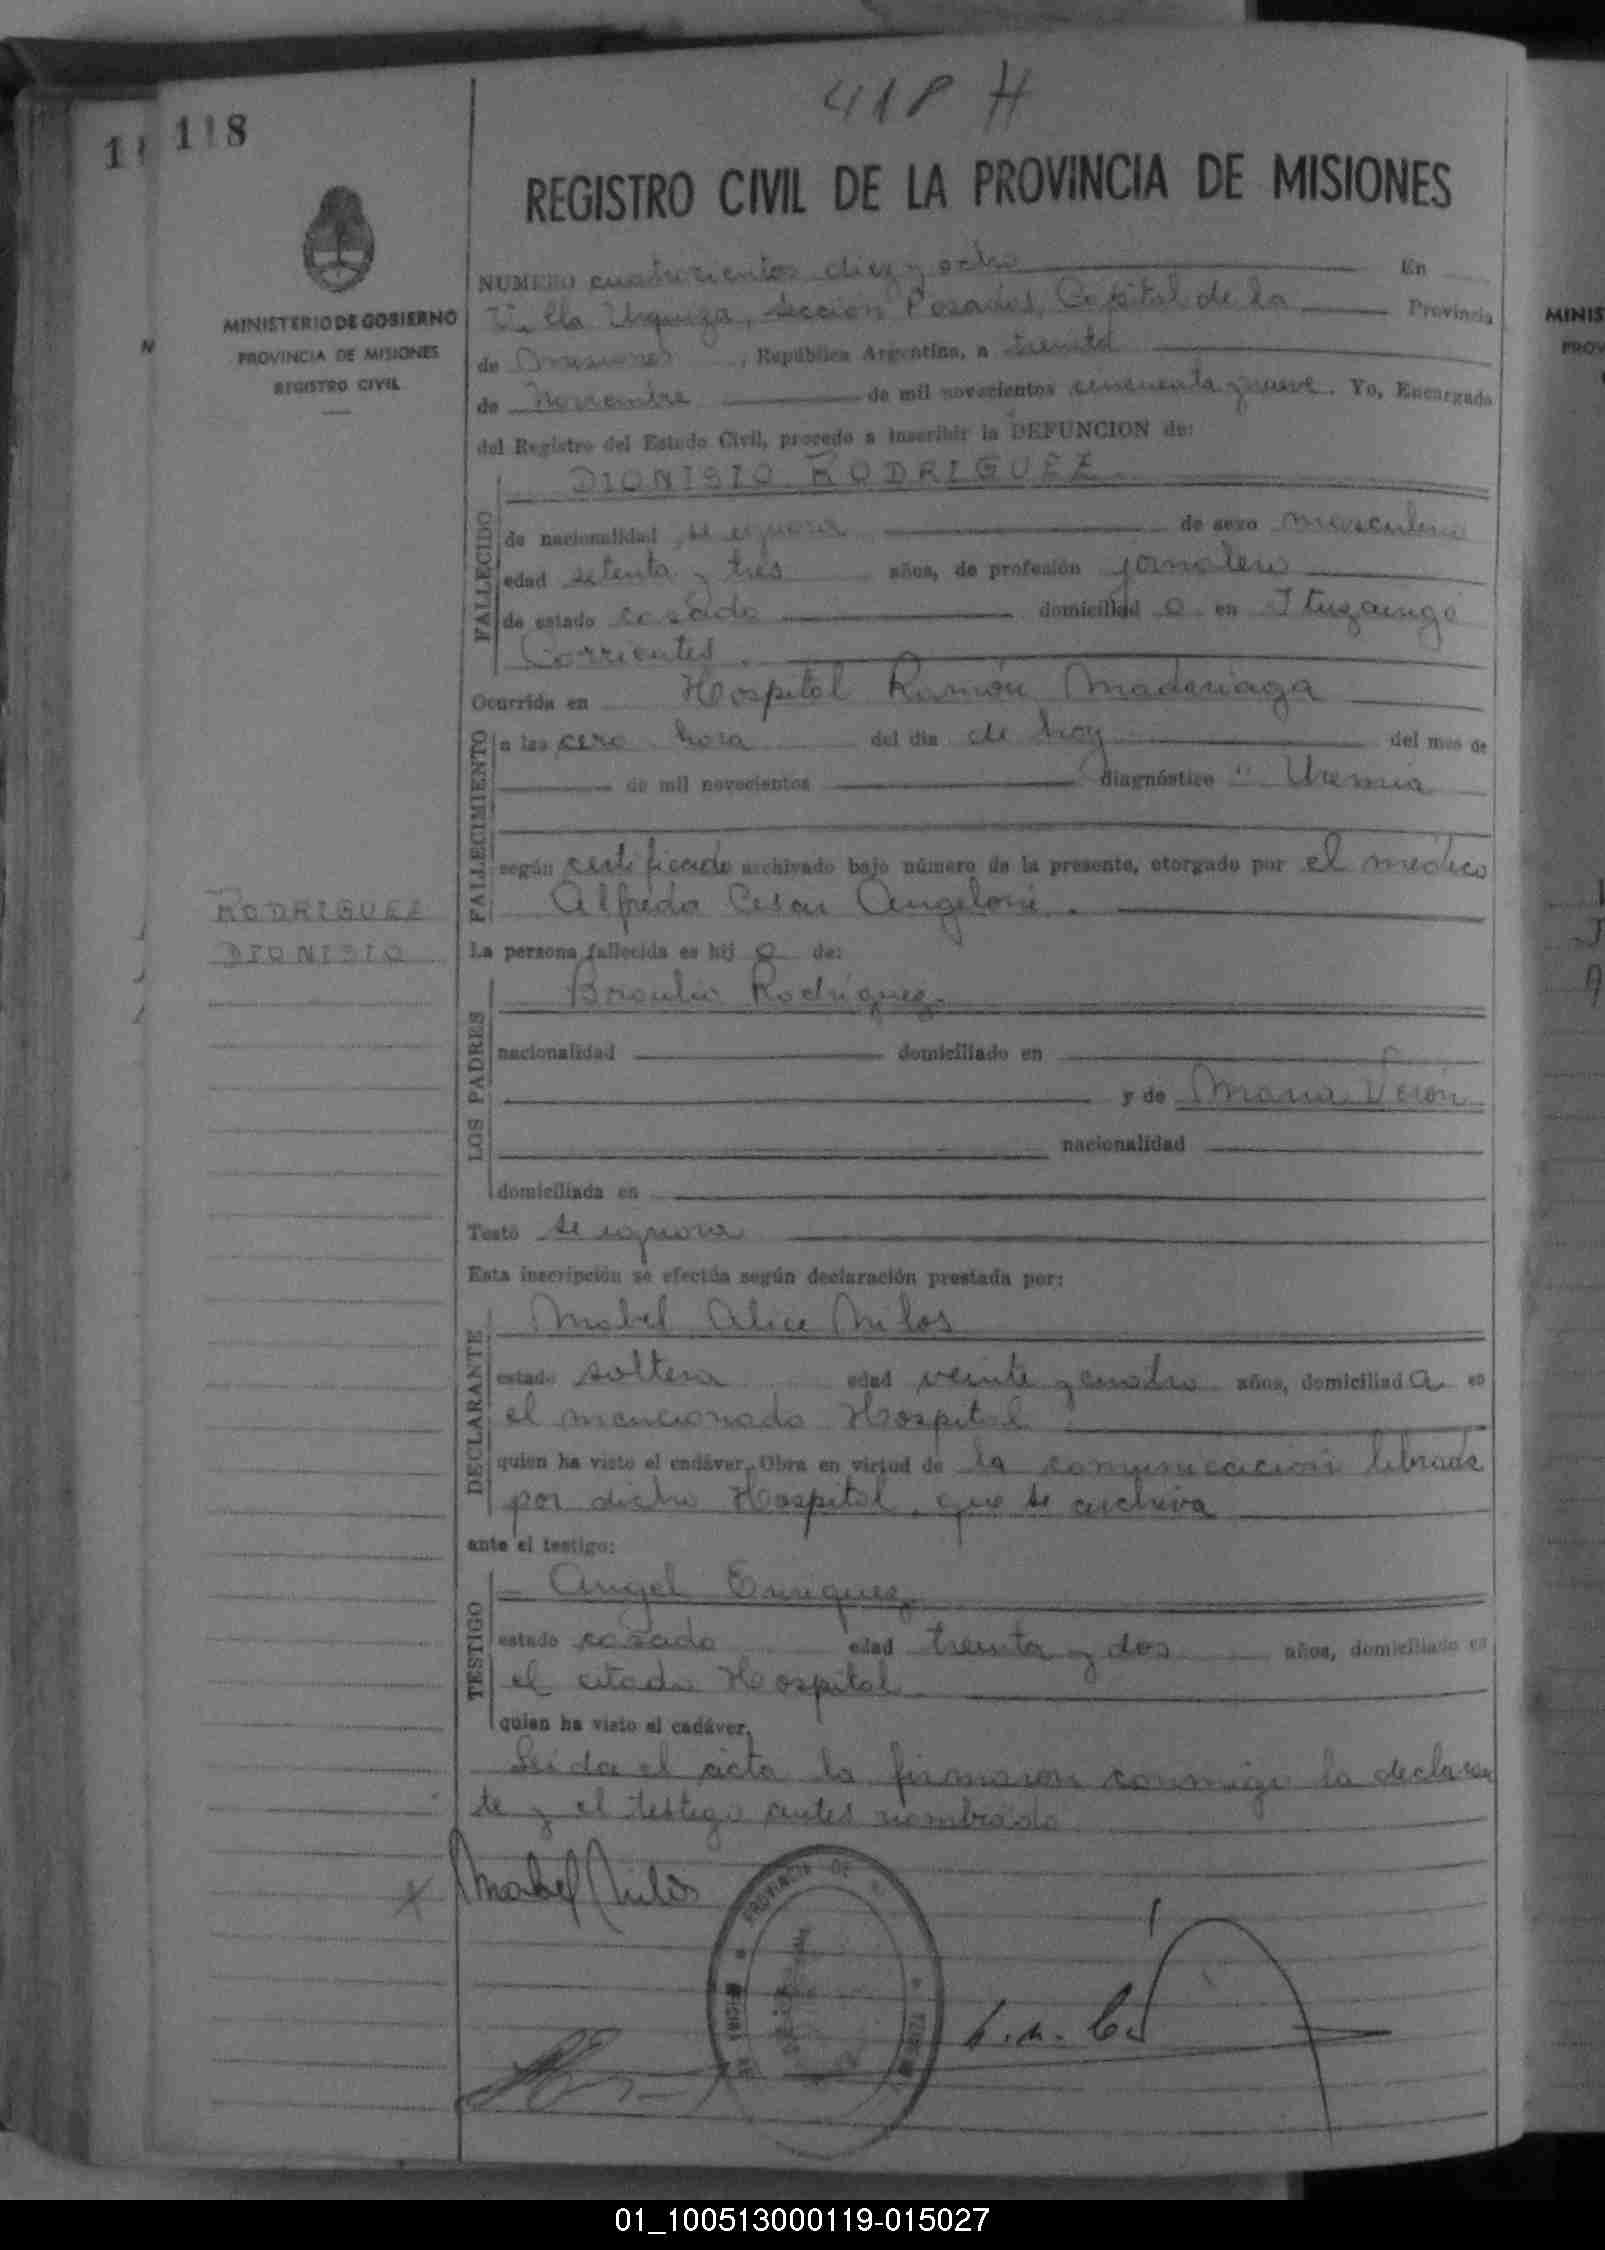 418 H
118
REGISTRO CIVIL DE LA PROVINCIA DE MISIONES
MINISTERIO DE GOBIERNO
PROVINCIA DE MISIONES
REGISTRO CIVIL
NUMERO cuatrocientos diez y ocho En
Villa Urquiza, sección Posadas, Capital de la Provincia
de Misiones, República Argentina, a treinta
de Noviembre de mil novecientos cincuenta y nueve. Yo, Encargado
del Registro del Estado Civil, procedo a inscribir la DEFUNCION de:
DIONISIO RODRIGUEZ
FALLECIDO
de nacionalidad se ignora de sexo masculino
edad setenta y tres años, de profesión jornalero
de estado casado domiciliad o en Ituzaingo
Corrientes.
Ocurrida en Hospital Ramón Madariaga
FALLECIMIENTO
a las cero hora del día de hoy del mes de
de mil novecientos diagnóstico " Uremia
según certificado archivado bajo número de la presente, otorgado por el médico
Alfredo Cesar Angeloni.
RODRIGUEZ
DIONISIO
La persona fallecida es hij o de:
LOS PADRES
Braulio Rodriguez.
nacionalidad domiciliado en
y de Maria Verón
nacionalidad
domiciliada en
Testó se ignora
Esta inscripción se efectúa según declaración prestada por:
DECLARANTE
Mabel Alice Milos
estado soltera edad veinte y cuatro años, domiciliad a en
el mencionado Hospital
quien ha visto el cadáver. Obra en virtud de la comunicación librada
por dicho Hospital, que se archiva
ante el testigo:
TESTIGO
Angel Enriquez
estado casado edad treinta y dos años, domiciliado en
el citado Hospital
quien ha visto el cadáver.
Leida el acta la firmaron conmigo la declaran
te y el testigo antes nombrado
Mabel Milos
PROVINCIA DE
01_100513000119-015027